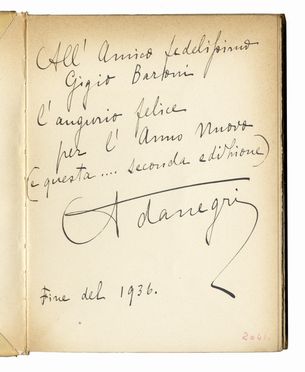 All' Amico fedelissimo
Gigio Bartoni
l'augurio felice
per l' Anno Nuovo
(e questa .... seconda edizione)
Adanegri
Fine del 1936.